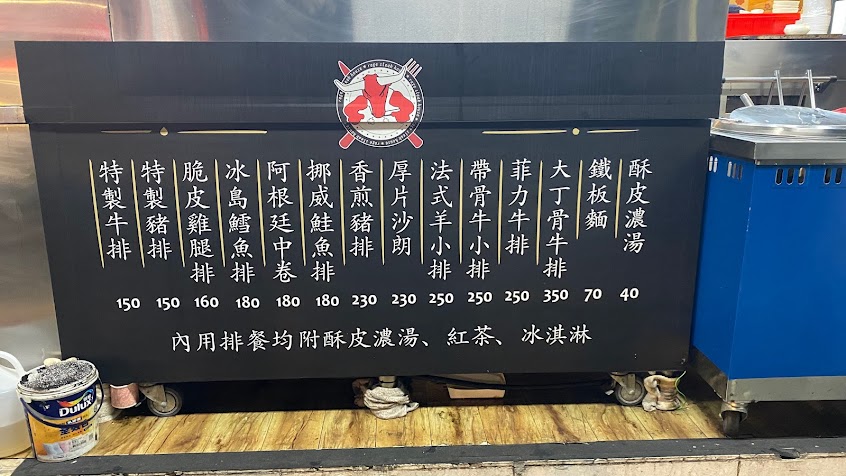 酥皮濃湯 40
鐵板麵 70
大丁骨牛排 350
菲力牛排 250
帶骨牛小排 250
法式羊小排 250
厚片沙朗 230
香煎豬排 230
挪威鮭魚排 180
阿根廷中卷 180
冰島鱈魚排 180
脆皮雞腿排 160
特製豬排 150
特製牛排 150
內用排餐均附酥皮濃湯、紅茶、冰淇淋
Dulux